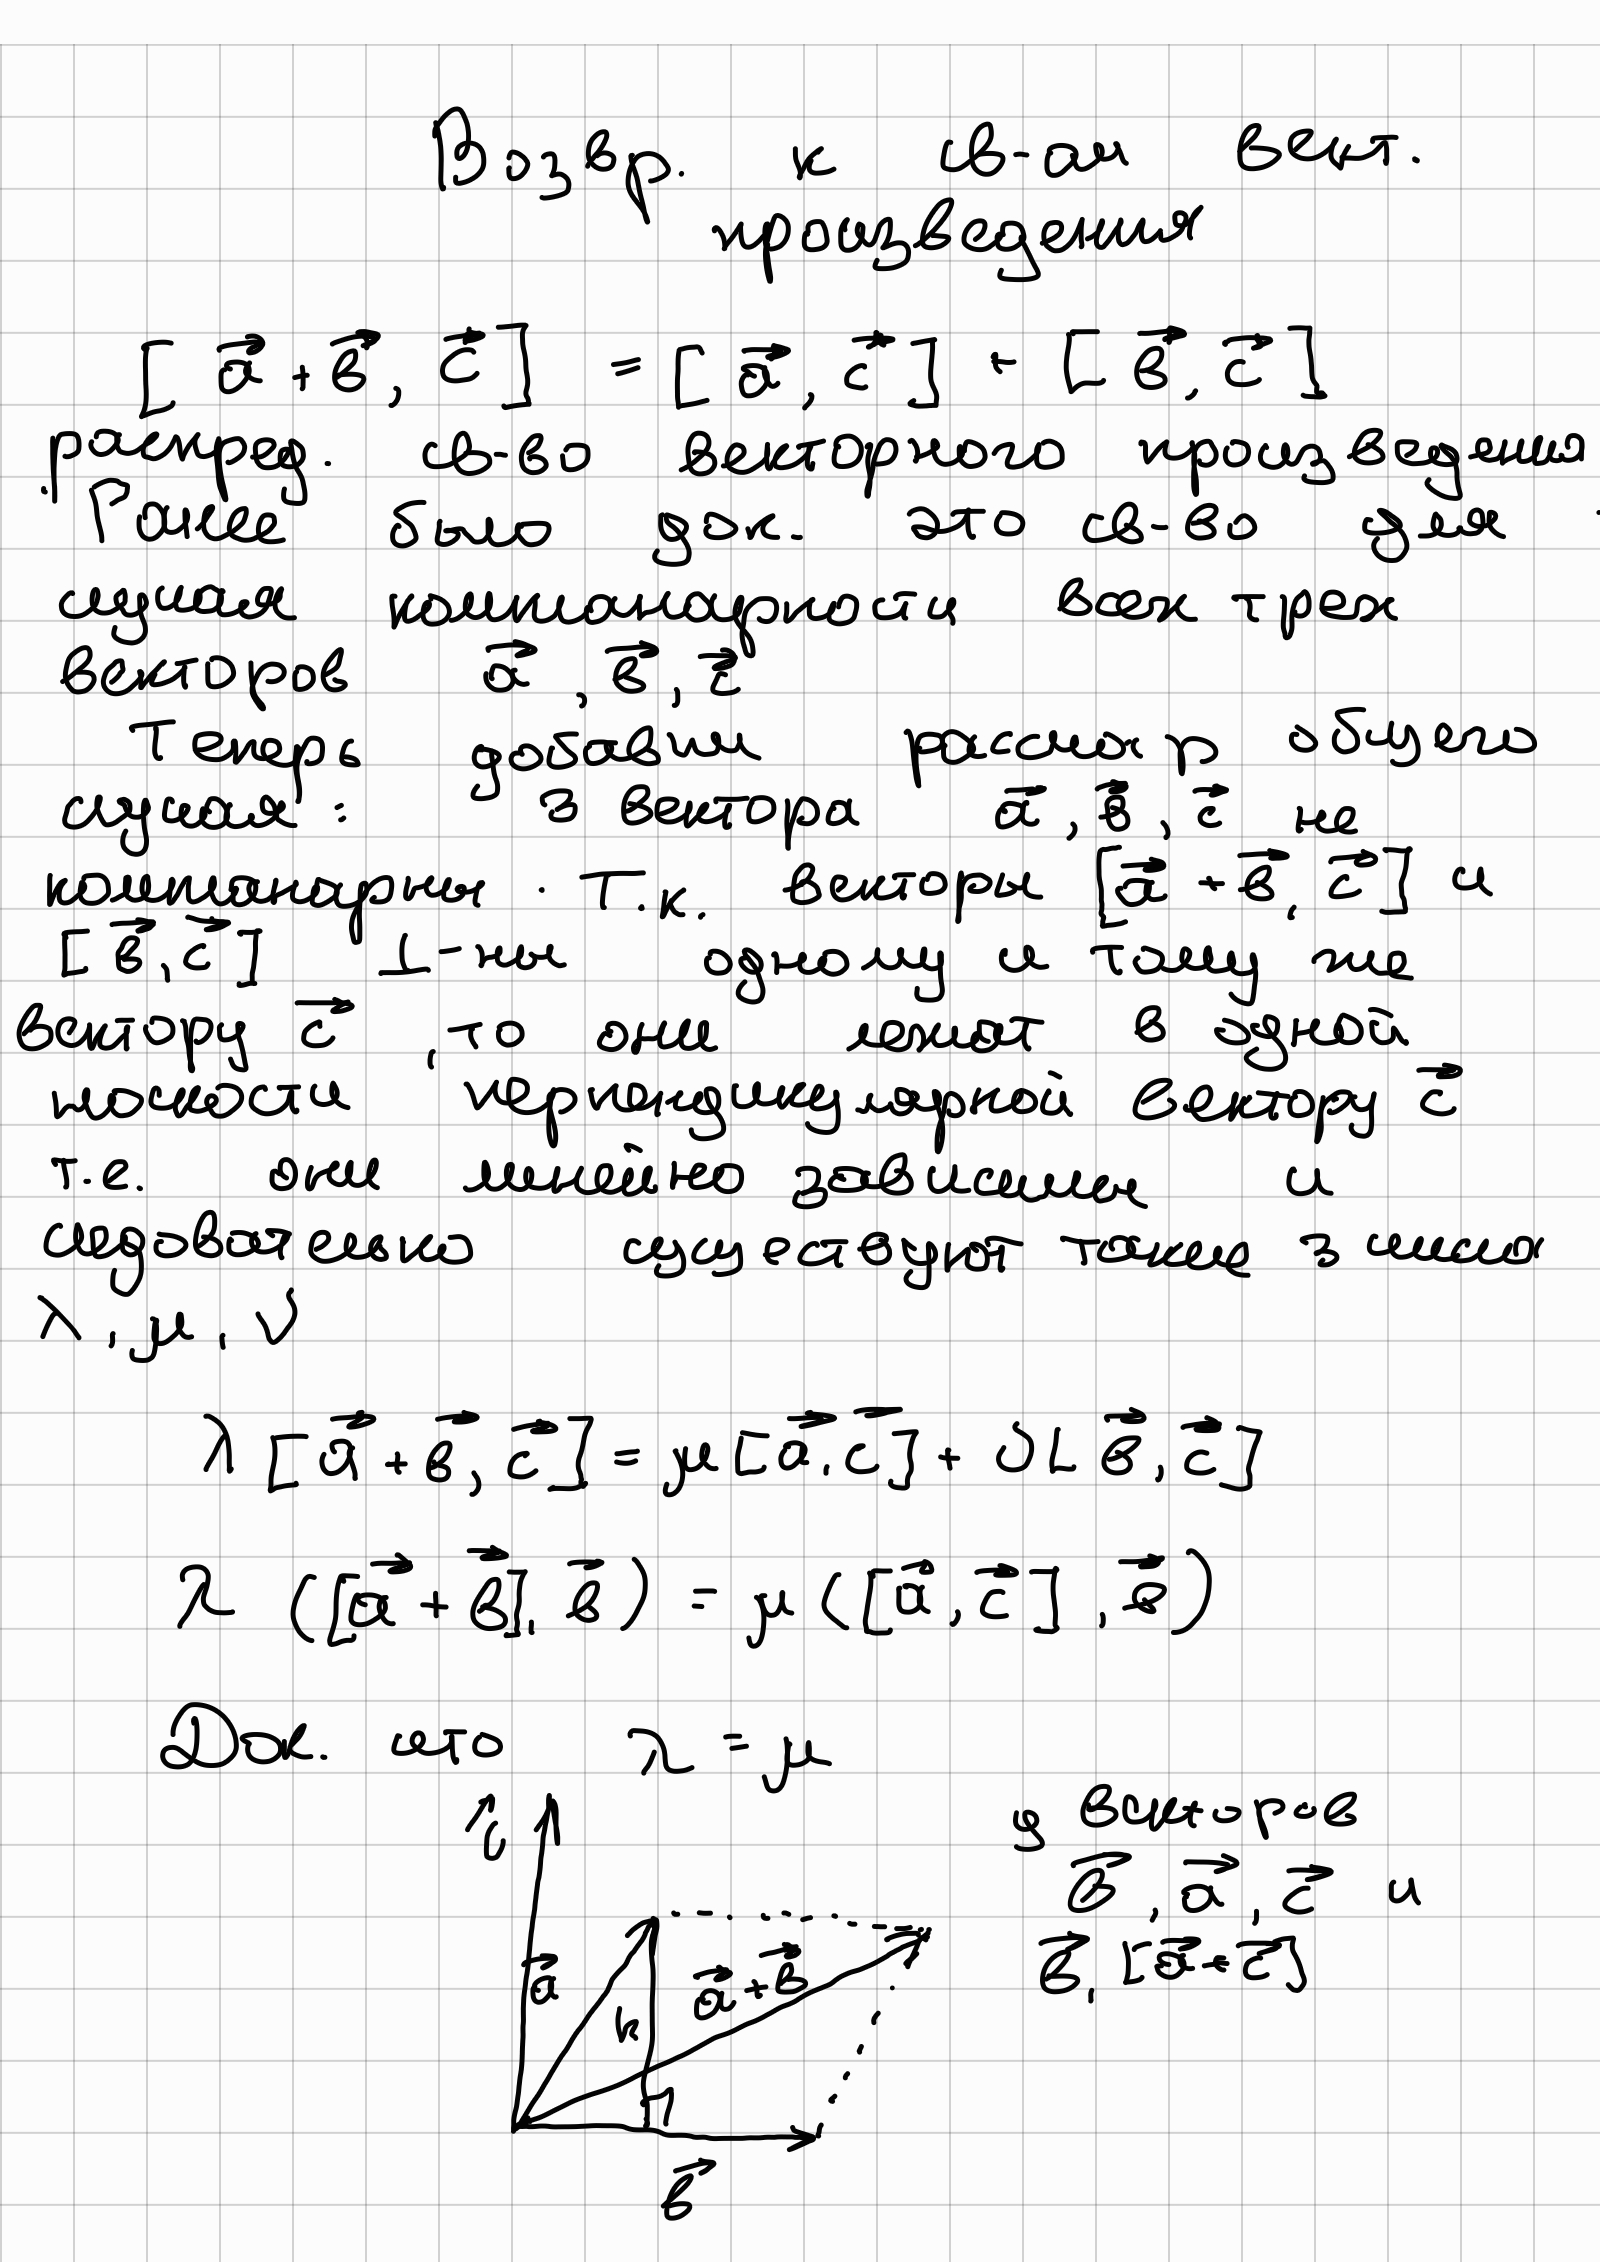 Возвр. к св-ам вект.
произведения
[a⃗ + в⃗, c⃗] = [a⃗, c⃗] + [в⃗, c⃗]
распред. св-во векторного произведения
Ранее было док. это св-во для
случая компланарности всех трех
векторов a⃗, в⃗, c⃗
Теперь добавим рассмотр общего
случая: 3 вектора a⃗, в⃗, c⃗ не
компланарны. Т.к. векторы [a⃗ + в⃗, c⃗] и
[в⃗, c⃗] ⊥-ны одному и тому же
вектору c⃗, то они лежат в одной
плоскости перпендикулярной вектору c⃗
т.е. они линейно зависимы и
следовательно существуют такие 3 числа
λ, μ, ν
λ [a⃗ + в⃗, c⃗] = μ [a⃗, c⃗] + ν [в⃗, c⃗]
λ ([a⃗ + в⃗], в⃗) = μ ([a⃗, c⃗], в⃗)
Док. что λ = μ
у векторов
в⃗, a⃗, c⃗ и
в⃗, [a⃗ + c⃗]
c⃗
a⃗
h
a⃗ + в⃗
в⃗